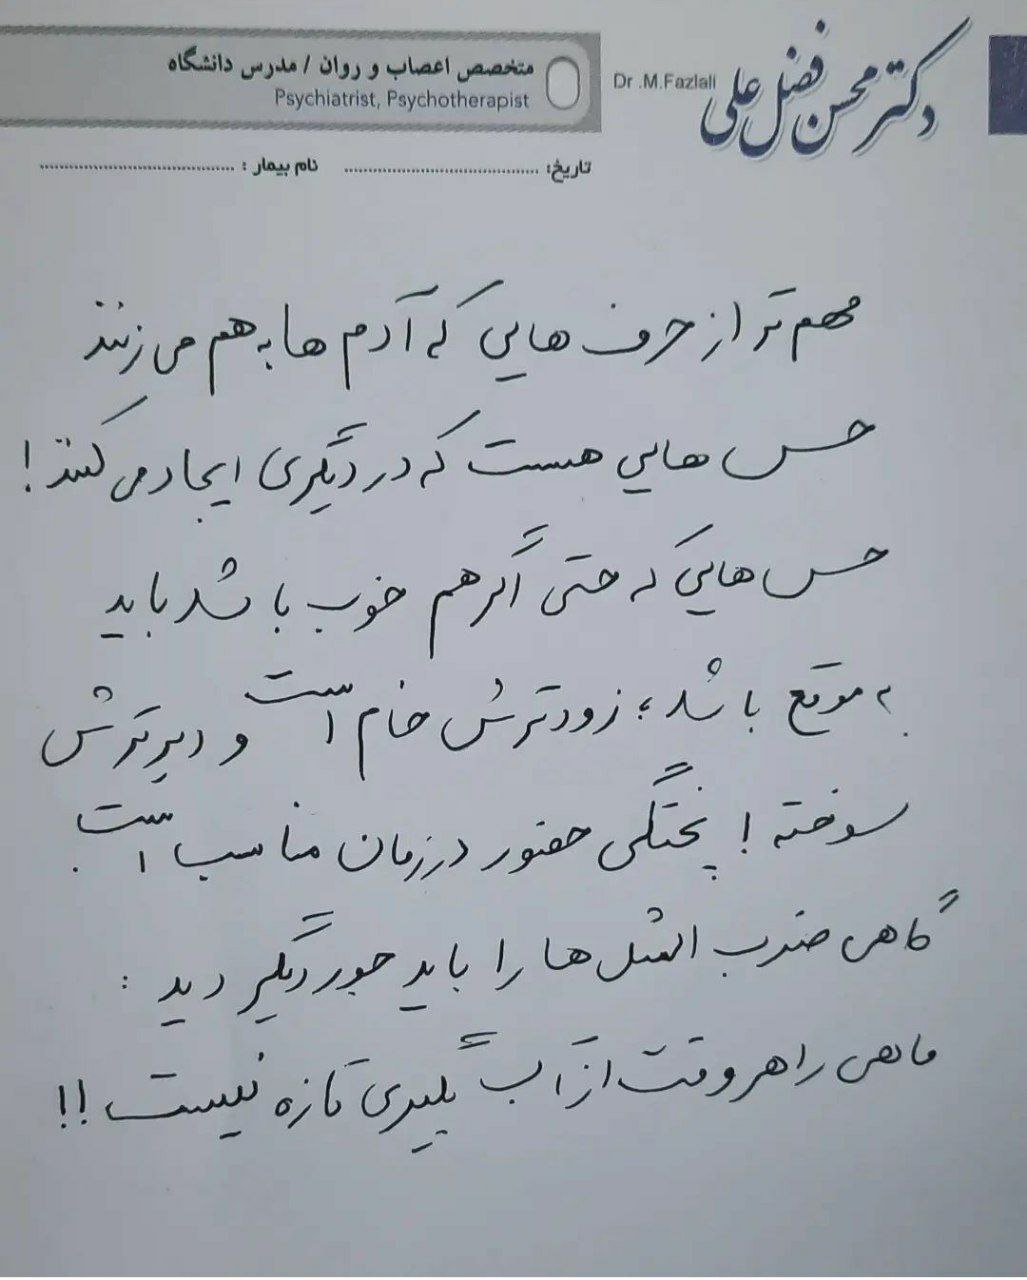 دکتر محسن فضل علی
Dr .M.Fazlali
متخصص اعصاب و روان / مدرس دانشگاه
Psychiatrist, Psychotherapist
تاریخ: ........................................ نام بیمار : ........................................
مهم تر از حرف هایی که آدم ها به هم می زنند
حس هایی هست که در دیگری ایجاد می کنند !
حس هایی که حتی اگر هم خوب باشد باید
به موقع باشد ؛ زودترش خام است و دیرترش
سوخته ! پختگی حضور در زمان مناسب است .
گاهی ضرب المثل ها را باید جور دیگر دید :
ماهی را هر وقت از آب بگیری تازه نیست !!